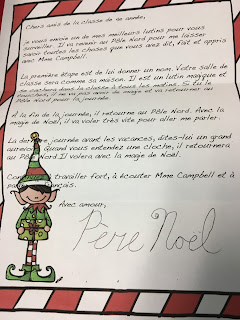 Chers amis de la classe de 4e année,
Je vous envoie un de mes meilleurs lutins pour vous
surveiller. Il va revenir au Pôle Nord pour me laisser
savoir toutes les choses que vous avez dit, fait et appris
avec Mme Campbell.
La première étape est de lui donner un nom. Votre salle de
classe sera comme sa maison. Il est un lutin magique et
se cachera dans la classe à tous les matins. Si tu le
touches, il ne va pas avoir de magie et va retourner au
Pôle Nord pour la journée.
À la fin de la journée, il retourne au Pôle Nord. Avec la
magie de Noël, il va voler très vite pour aller me parler.
La dernière journée avant les vacances, dites-lui un grand
aurevoir. Quand vous entendez une cloche, il retournera
au Pôle Nord. Il volera avec la magie de Noël.
travailler fort, à écouter Mme Campbell et à
français.
Avec amour,
Père Noël